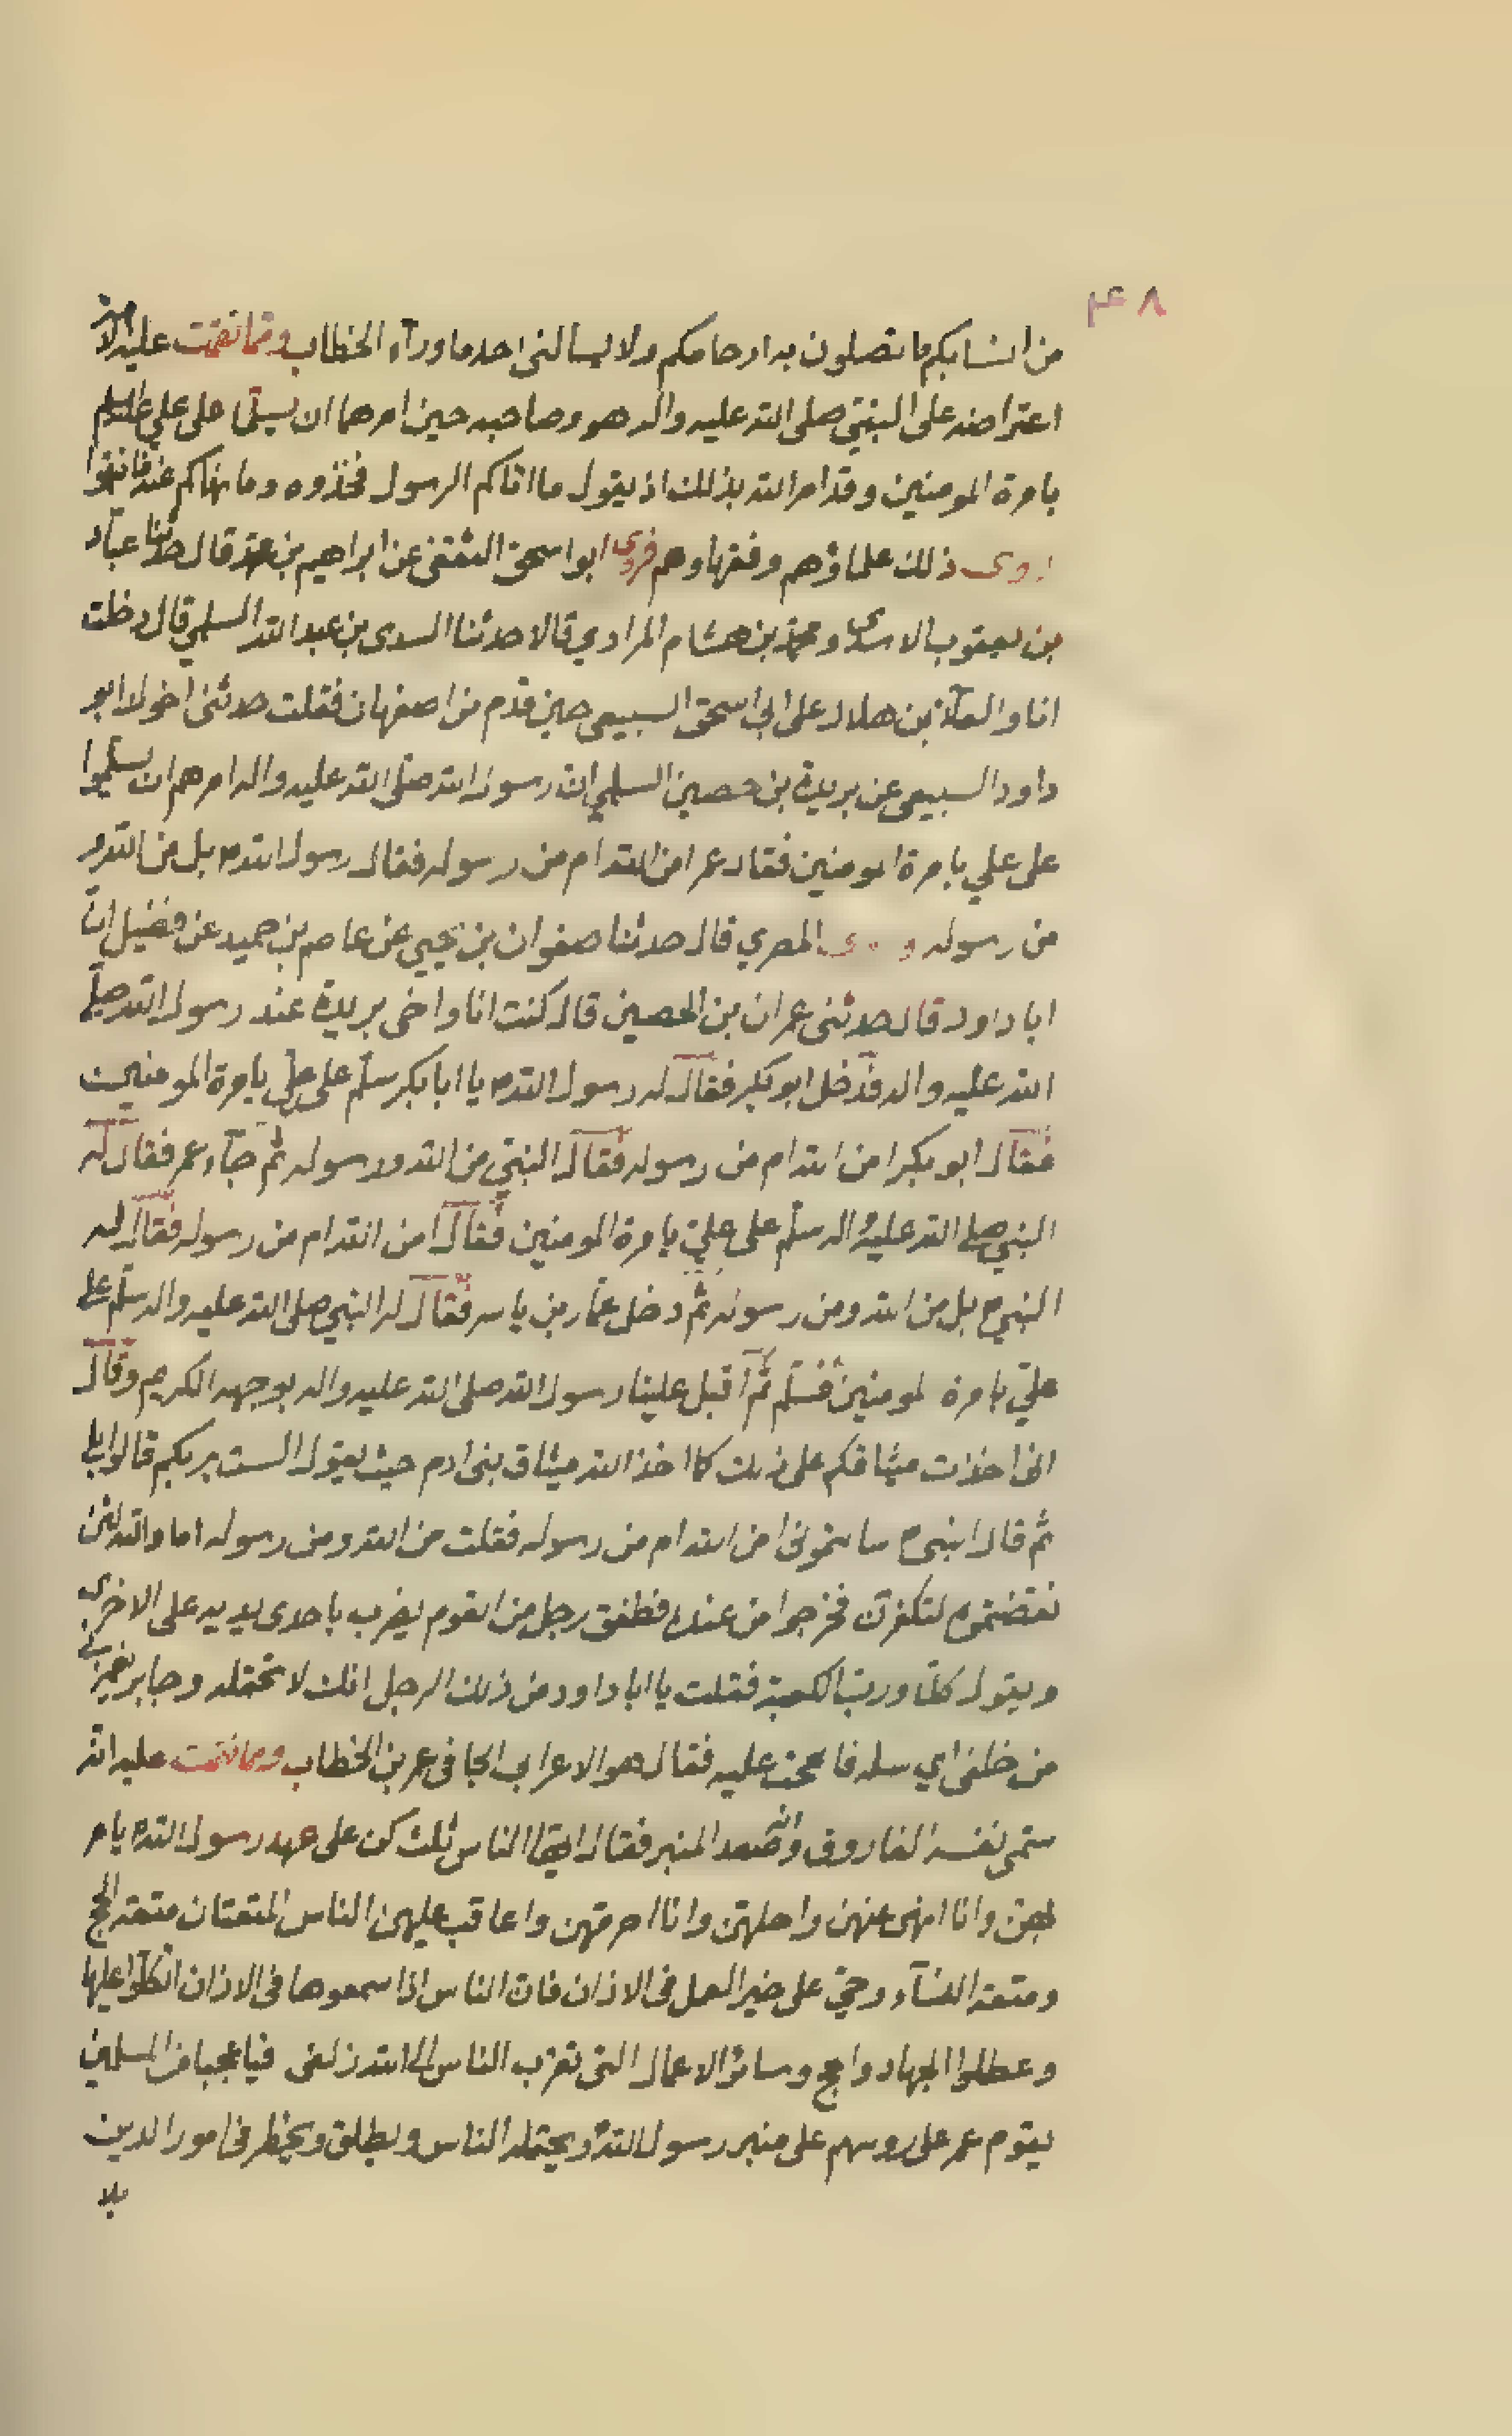 ۴۸
من انسابكم ما تصلون به ارحامكم ولا يسالنى احد ما ورآء الخطاب ومما نقمت عليه
اعتراضه على النبيّ صلى الله عليه واله هو وصاحبه حين امرهما ان يسلّما على علي عليه السلم
بامرة المومنين وقد امر الله بذلك اذ يقول ما اتاكم الرسول فخذوه وما نهاكم عنه فانتهوا
روى ذلك علماؤهم وفقهاوهم فروى ابو اسحق الثقفى عن ابراهيم بن محمّد قال حدثنا عبّاد
بن يعقوب الاسدى ومحمّد بن هشام المرادي قالا حدثنا السدى بن عبد الله السلمي قال دخلت
انا والعلآ بن هلال على ابى اسحق السبيعى حين قدم من اصفهان فقلت حدثنى اخولا ابو
داود السبيعى عن بريدة بن حصين السلمي انّ رسول الله صلّى الله عليه واله امرهم ان يسلّموا
على علي بامرة المومنين فقال عمر امن الله ام من رسوله فقال رسول الله ص بل من الله و
من رسوله و ى المصري قال حدثنا صفوان بن يحيى عن عاصم بن حميد عن فضيل انّ
ابا داود قال حدثنى عمران بن الحصين قال كنت انا واخى بريدة عند رسول الله صلى
الله عليه واله فدخل ابو بكر فقال له رسول الله ص يا ابا بكر سلّم على علي بامرة المومنين
فقال ابو بكر امن الله ام من رسوله فقال النبيّ من الله و رسوله ثمّ جآء عمر فقال له
النبي صلى الله عليه واله سلّم على عليّ بامرة المومنين فقال امن الله ام من رسوله فقال له
النبي ص بل من الله ومن رسوله ثمّ دخل عمّار بن ياسر فقال له النبي صلى الله عليه واله سلّم على
عليّ بامرة لمومنين فسلّم ثمّ اقبل علينا رسول الله صلى الله عليه واله بوجهه الكريم وقال
انى اخذت ميثاقكم على ذلك كما اخذ الله ميثاق بنى ادم حيث يقول الست بربكم قالوا بلى
ثم قال النبى ص سالتمونى امن الله ام من رسوله فقلت من الله ومن رسوله اما والله لئن
نقضتموه لتكفرن فخرجوا من عنده فطفق رجل من القوم يضرب باحدى يديه على الاخرى
ويقول كلّا وربّ الكعبة فقلت يا ابا داود من ذلك الرجل انك لا تحتمله وجابر يغمزنى
من خلفى اي سله فالححت عليه فقال هو الاعرابى الجافى عمر بن الخطاب ومما نقمت عليه انه
سمّى نفسه الفاروق وانّه صعد المنبر فقال ايّها الناس ثلث كن على عهد رسول الله ص يامر
بهنّ وانا انهى عنهن واحلهنّ وانا احرمهن واعاقب عليهن الناس المتعتان متعة الحج
ومتعة النسآء وحيّ على خير العمل فى الاذان فان الناس اذا سمعوها فى الاذان اتّكلوا عليها
وعطلوا الجهاد والحج وسائر الاعمال التى تقرب الناس الى الله زلفى فيا عجبا من المسلمين
يقوم عمر على روسهم على منبر رسول الله ويحتمله الناس ويطلق ويحظر فى امور الدين
بلا